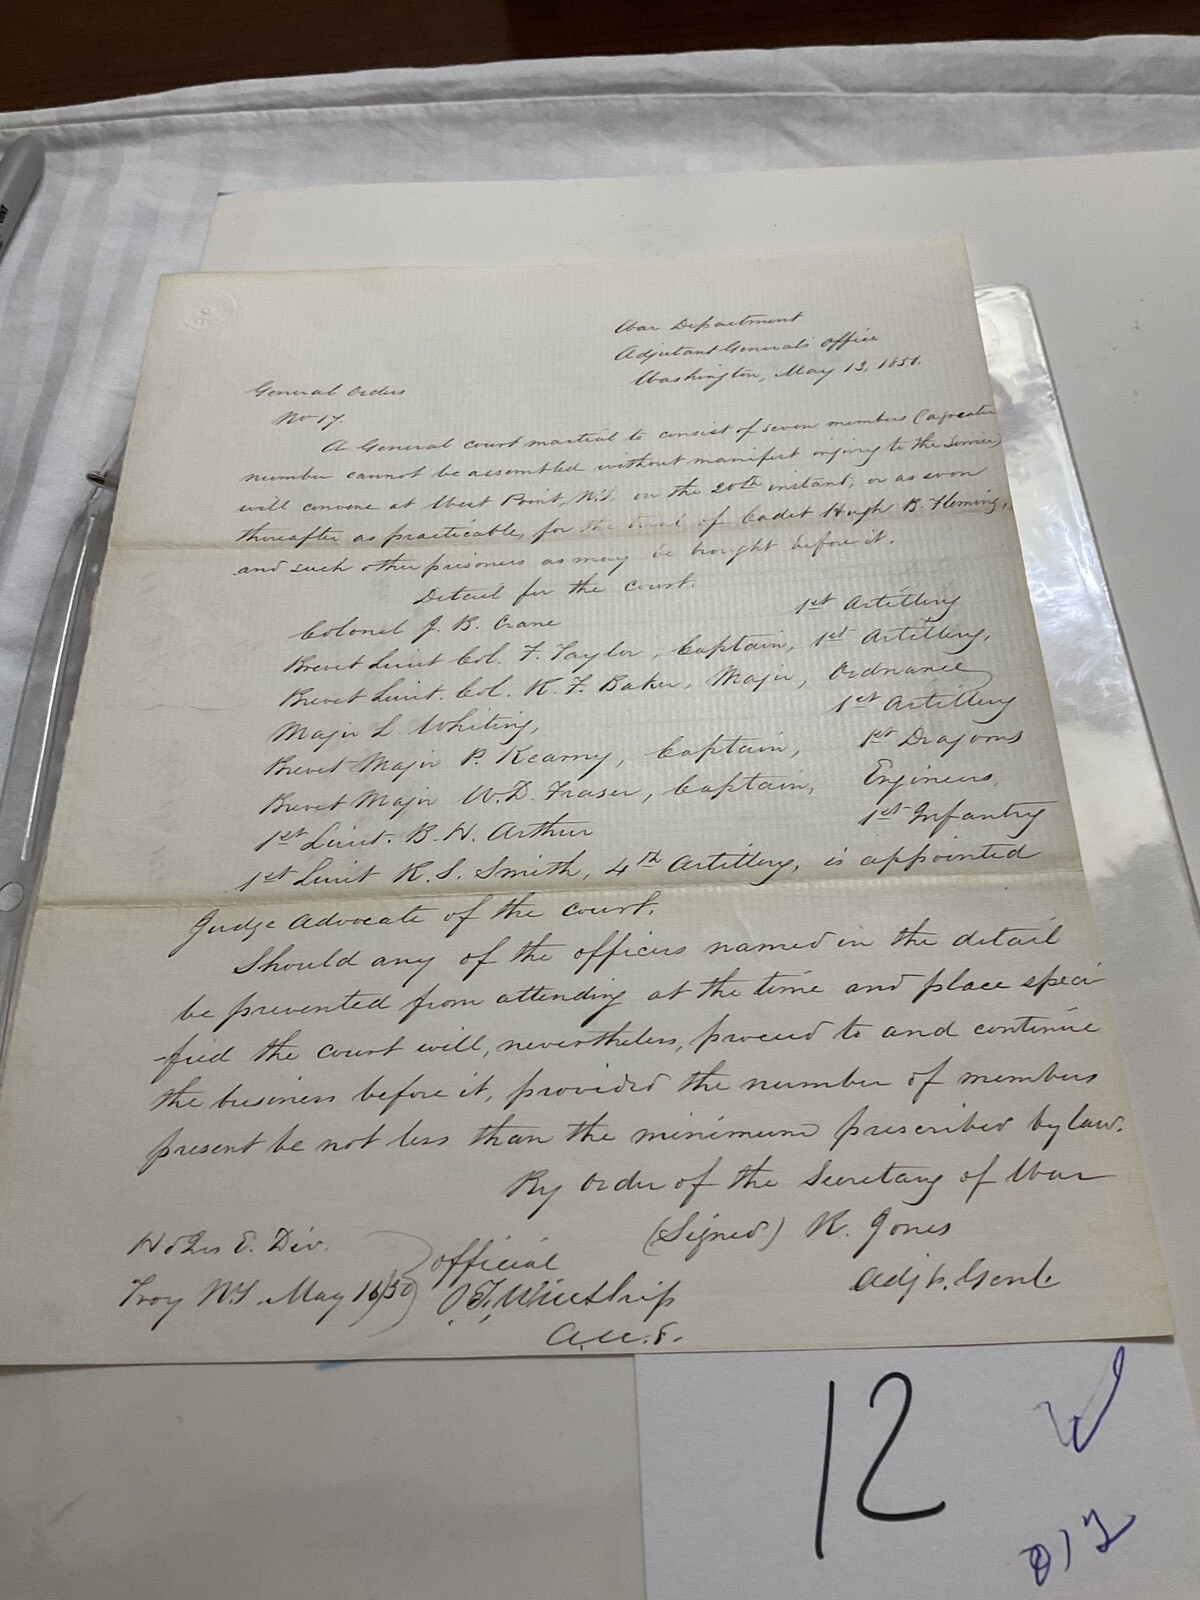 War Department
Adjutant General's office
Washington, May 13, 1850.
General Orders
No 17.
A General court martial to consist of seven members (a greater
number cannot be assembled without manifest injury to the Service)
will convene at West Point, N.Y. on the 20th instant, or as soon
thereafter as practicable, for the trial of Cadet Hugh B. Fleming,
and such other prisoners as may be brought before it.
Detail for the court.
Colonel J. B. Crane 1st Artillery
Brevet Lieut Col. F. Taylor, Captain, 1st Artillery,
Brevet Lieut. Col. R. F. Baker, Major, Ordnance
Major L. Whiting, 1st Artillery
Brevet Major P. Kearny, Captain, 1st Dragoons
Brevet Major W. D. Fraser, Captain, Engineers,
1st Lieut. B. H. Arthur 1st Infantry
1st Lieut R. S. Smith, 4th Artillery, is appointed
Judge Advocate of the court.
Should any of the officers named in the detail
be prevented from attending at the time and place speci
-fied the court will, nevertheless, proceed to and continue
the business before it, provided the number of members
present be not less than the minimum prescribed by law.
By order of the Secretary of War
(Signed) R. Jones
Adjt. Genl.
Hd Qrs E. Div.
Troy N.Y. May 16/50
official
O. F. Winship
A.A.G.
12